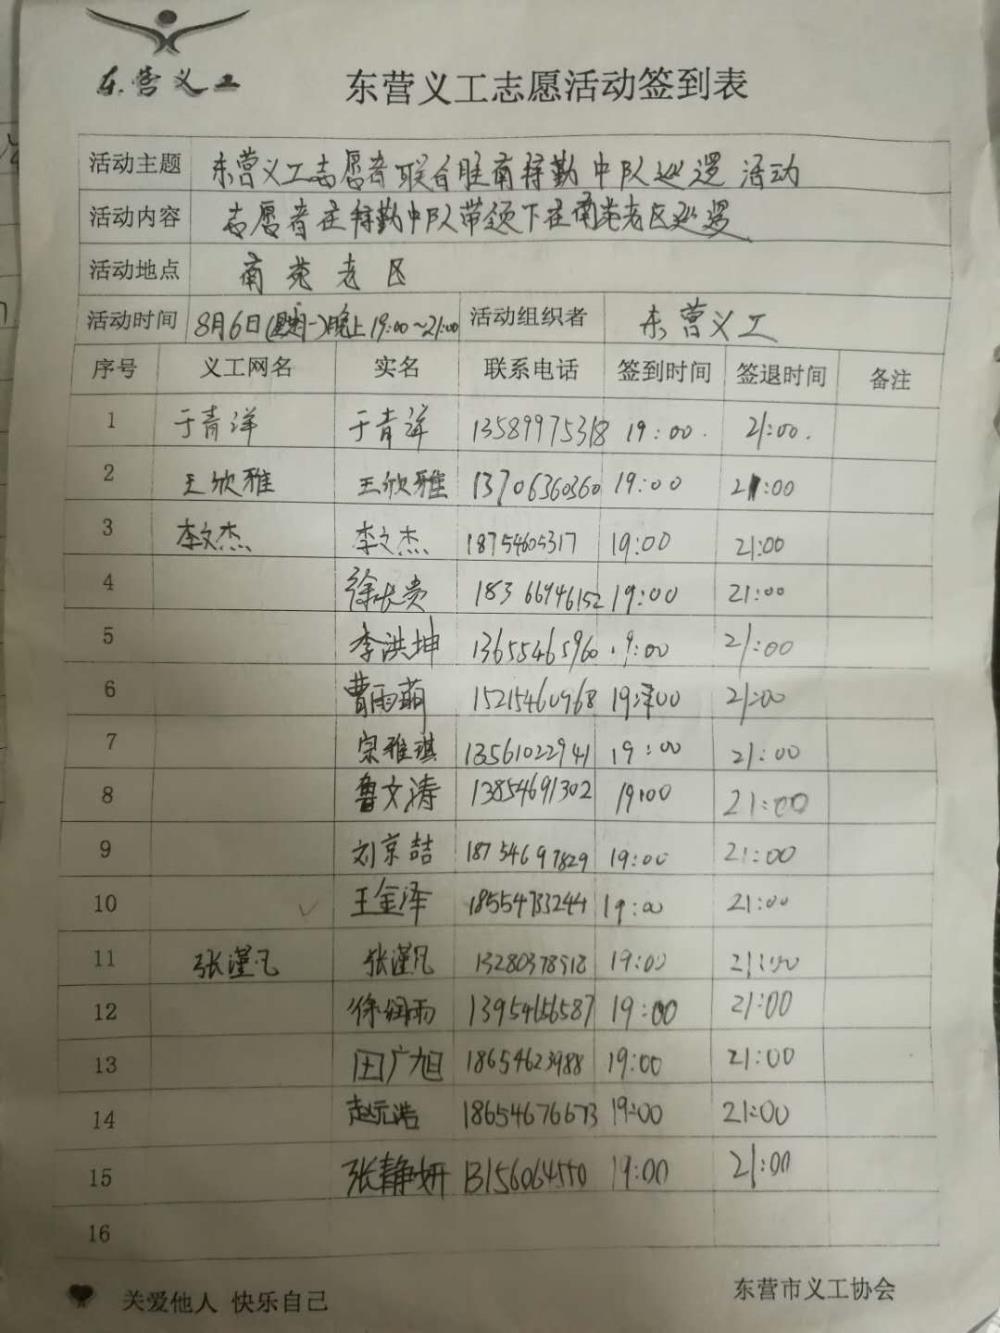 东营义工
东营义工志愿活动签到表
活动主题 东营义工志愿者联合胜南特勤中队巡逻活动
活动内容 志愿者在特勤中队带领下在南苑老区巡逻
活动地点 南苑老区
活动时间 8月6日(星期一)晚上19:00~21:00 活动组织者 东营义工
序号 义工网名 实名 联系电话 签到时间 签退时间 备注
1 于青洋 于青洋 13589975318 19:00. 21:00.
2 王欣雅 王欣雅 13706360360 19:00 21:00
3 李文杰 李文杰 18754605317 19:00 21:00
4 徐长贵 18366946152 19:00 21:00
5 李洪坤 13655465960 19:00 21:00
6 曹雨萌 15215460968 19:00 21:00
7 宗雅琪 13561022941 19:00 21:00
8 鲁文涛 13854691302 19:00 21:00
9 刘京喆 18754697829 19:00 21:00
10 王金泽 18554733244 19:00 21:00
11 张瑾凡 张瑾凡 13280378518 19:00 21:00
12 徐润雨 13954656587 19:00 21:00
13 田广旭 18654623988 19:00 21:00
14 赵元浩 18654676673 19:00 21:00
15 张静妍 13156064550 19:00 21:00
16
关爱他人 快乐自己
东营市义工协会